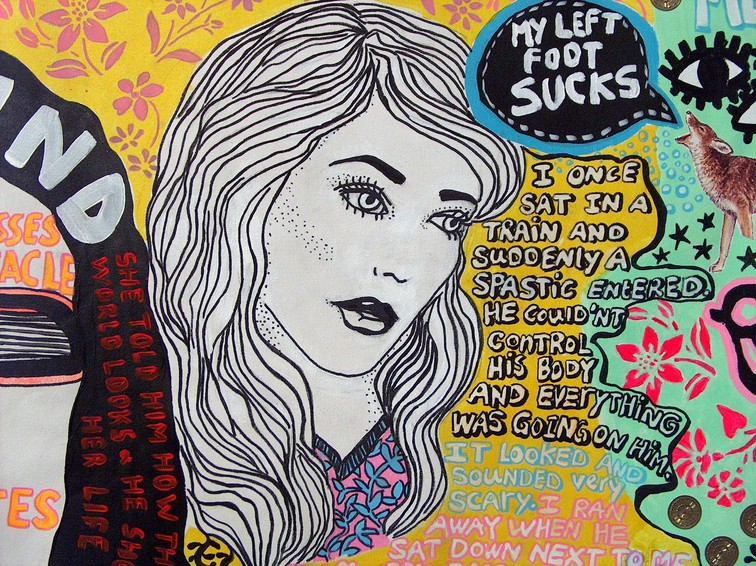 MY LEFT
FOOT
SUCKS
I ONCE
SAT IN A
TRAIN AND
SUDDENLY A
SPASTIC ENTERED.
HE COULD'NT
CONTROL
HIS BODY
AND EVERYTHING
WAS GOING ON HIM.
IT LOOKED AND
SOUNDED VERY
SCARY. I RAN
AWAY WHEN HE
SAT DOWN NEXT TO ME
AND
SSES
ACLE
TES
SHE TOLD HIM HOW TH
WORLD LOOKS & HE SHO
HER LIFE